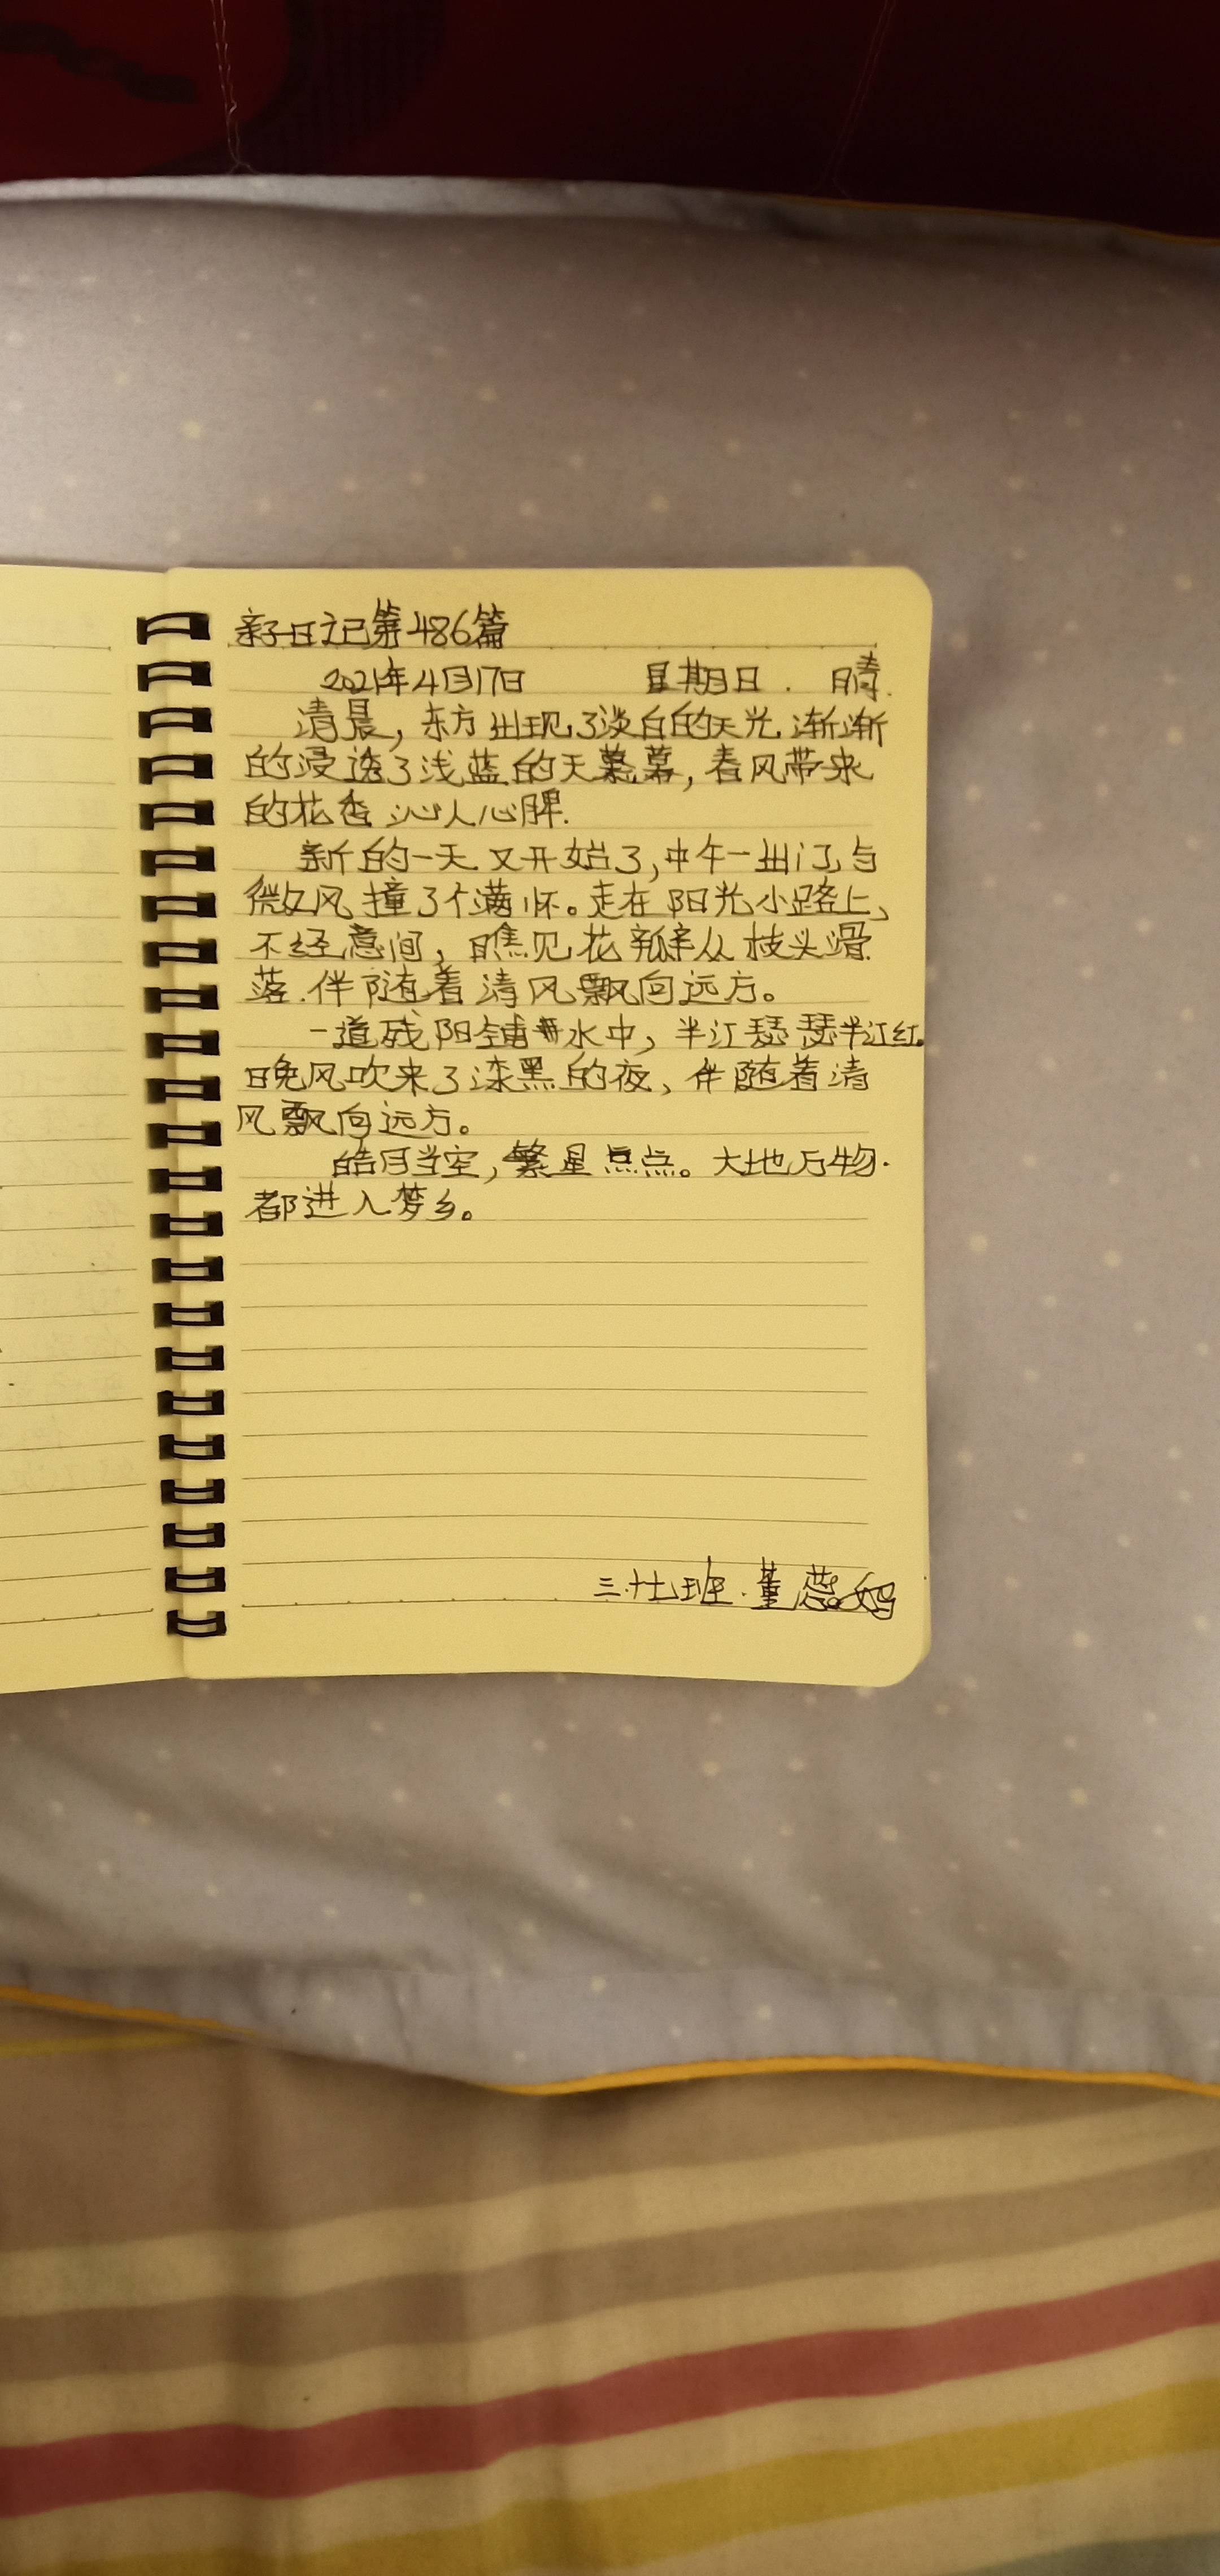 亲子日记第486篇
2021年4月17日 星期日. 晴.
清晨,东方出现了淡白的天光,渐渐
的浸透了浅蓝的天幕,春风带来
的花香沁人心脾.
新的一天又开始了,中午一出门,与
微风撞了个满怀。走在阳光小路上,
不经意间,瞧见花瓣从枝头滑
落.伴随着清风飘向远方。
一道残阳铺水中,半江瑟瑟半江红。
晚风吹来了漆黑的夜,伴随着清
风飘向远方。
皓月当空,繁星点点。大地万物.
都进入梦乡。
三.十七班.董蕊妈